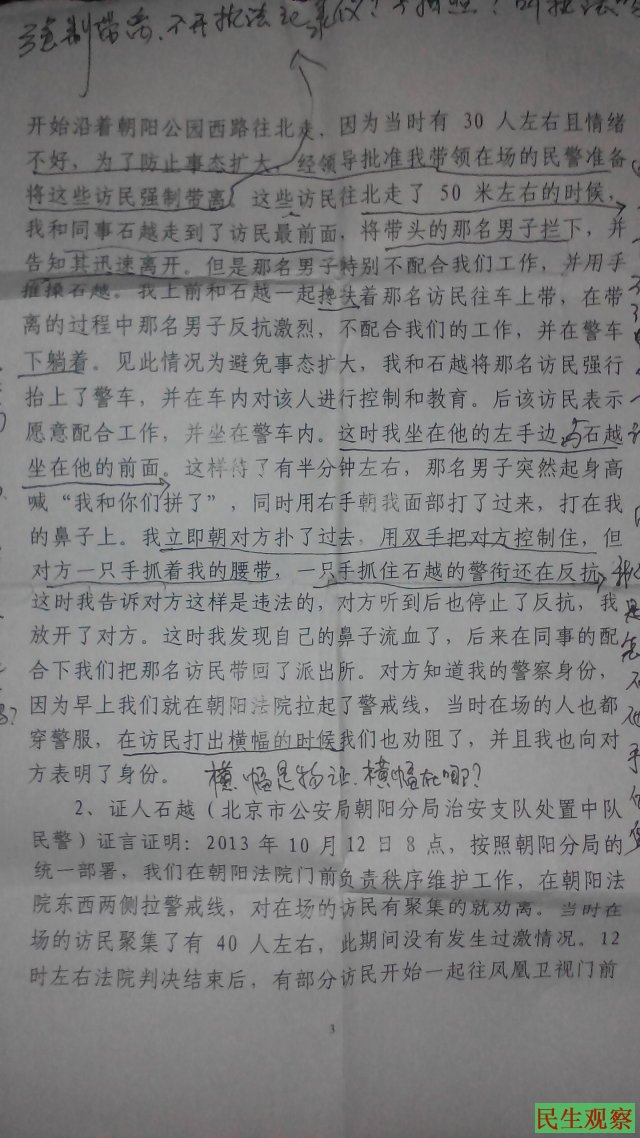 强制带离、不开执法记录仪？不拍照？叫执法
开始沿着朝阳公园西路往北走，因为当时有 30 人左右且情绪
不好，为了防止事态扩大，经领导批准我带领在场的民警准备
将这些访民强制带离。这些访民往北走了 50 米左右的时候，
我和同事石越走到了访民最前面，将带头的那名男子拦下，并
告知其迅速离开。但是那名男子特别不配合我们工作，并用手
推搡石越。我上前和石越一起搀扶着那名访民往车上带，在带
离的过程中那名男子反抗激烈，不配合我们的工作，并在警车
下躺着。见此情况为避免事态扩大，我和石越将那名访民强行
抬上了警车，并在车内对该人进行控制和教育。后该访民表示
愿意配合工作，并坐在警车内。这时我坐在他的左手边，石越
坐在他的前面。这样待了有半分钟左右，那名男子突然起身高
喊“我和你们拼了”，同时用右手朝我面部打了过来，打在我
的鼻子上。我立即朝对方扑了过去，用双手把对方控制住，但
对方一只手抓着我的腰带，一只手抓住石越的警衔还在反抗，
这时我告诉对方这样是违法的，对方听到后也停止了反抗，我
放开了对方。这时我发现自己的鼻子流血了，后来在同事的配
合下我们把那名访民带回了派出所。对方知道我的警察身份，
因为早上我们就在朝阳法院拉起了警戒线，当时在场的人也都
穿警服，在访民打出横幅的时候我们也劝阻了，并且我也向对
方表明了身份。 横幅是物证、横幅在哪？
2、证人石越（北京市公安局朝阳分局治安支队处置中队
民警）证言证明：2013 年 10 月 12 日 8 点，按照朝阳分局的
统一部署，我们在朝阳法院门前负责秩序维护工作，在朝阳法
院东西两侧拉警戒线，对在场的访民有聚集的就劝离。当时在
场的访民聚集了有 40 人左右，此期间没有发生过激情况。12
时左右法院判决结束后，有部分访民开始一起往凤凰卫视门前
3
民生观察